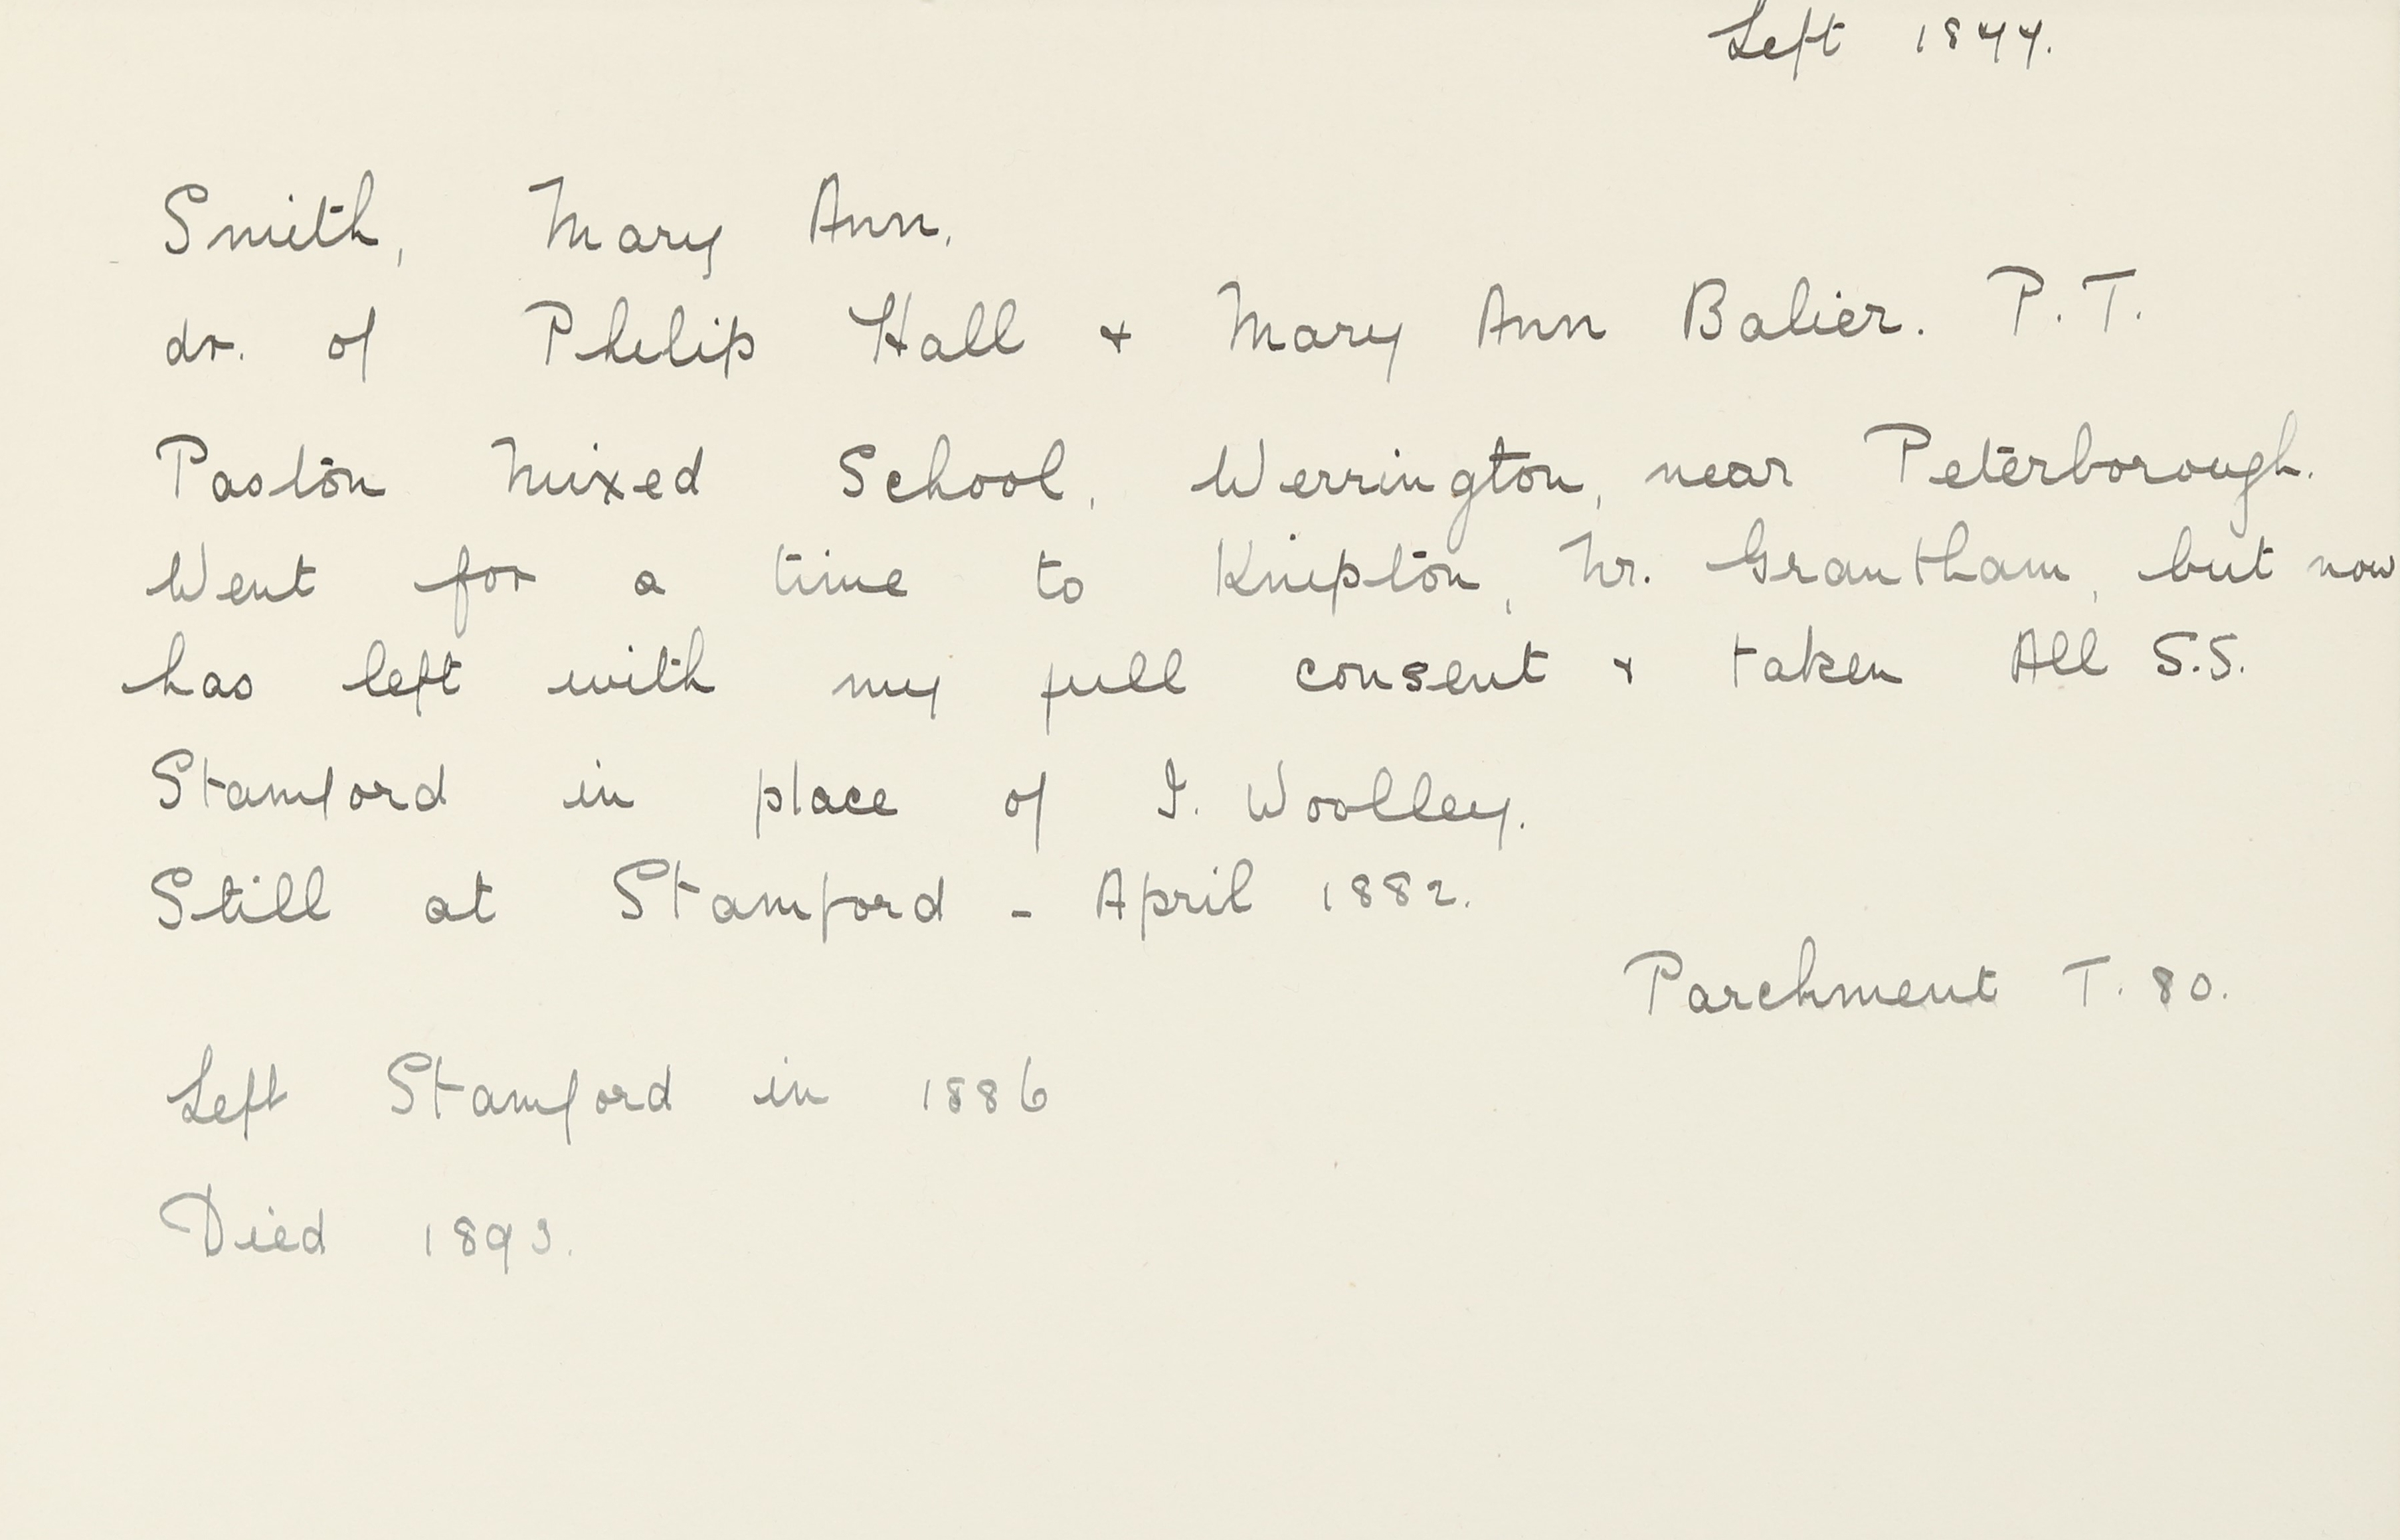 Left 1877.
Smith, Mary Ann.
dr. of Philip Hall & Mary Ann Balier. P.T.
Paston Mixed School, Werrington, near Peterborough.
Went for a time to Knipton, Nr. Grantham, but now
has left with my full consent & taken All S.S.
Stamford in place of I. Woolley.
Still at Stamford - April 1882.
Parchment T. 80.
Left Stamford in 1886
Died 1893.